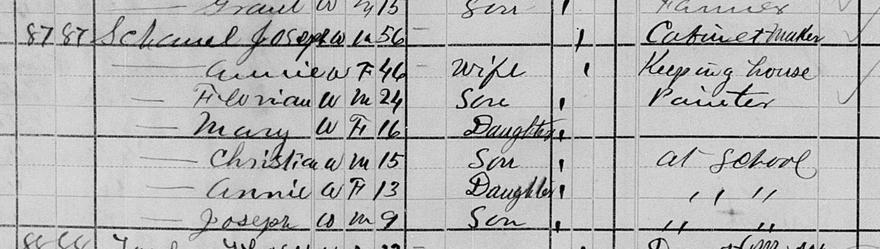 Grant W M 15 Son Farmer
87 87 Schauel Joseph W M 56 Cabinet Maker
— Annie W F 46 Wife Keeping house
— Florian W M 24 Son Painter
— Mary W F 16 Daughter
— Christian W M 15 Son at School
— Annie W F 13 Daughter " "
— Joseph W M 9 Son " "
88 88